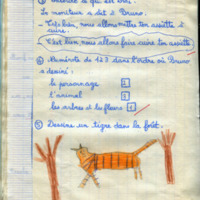 Le moniteur a dit à Bruno:
C'est bien, nous allons mettre ton assiette à
cuire.
C'est bien, nous allons faire cuire ton assiette
④ Numérote de 1 2 3 dans l'ordre où Bruno
a dessiné:
le personnage 2
l'animal
les arbres et les fleurs 1
⑤ Dessine un tigre dans la forêt.